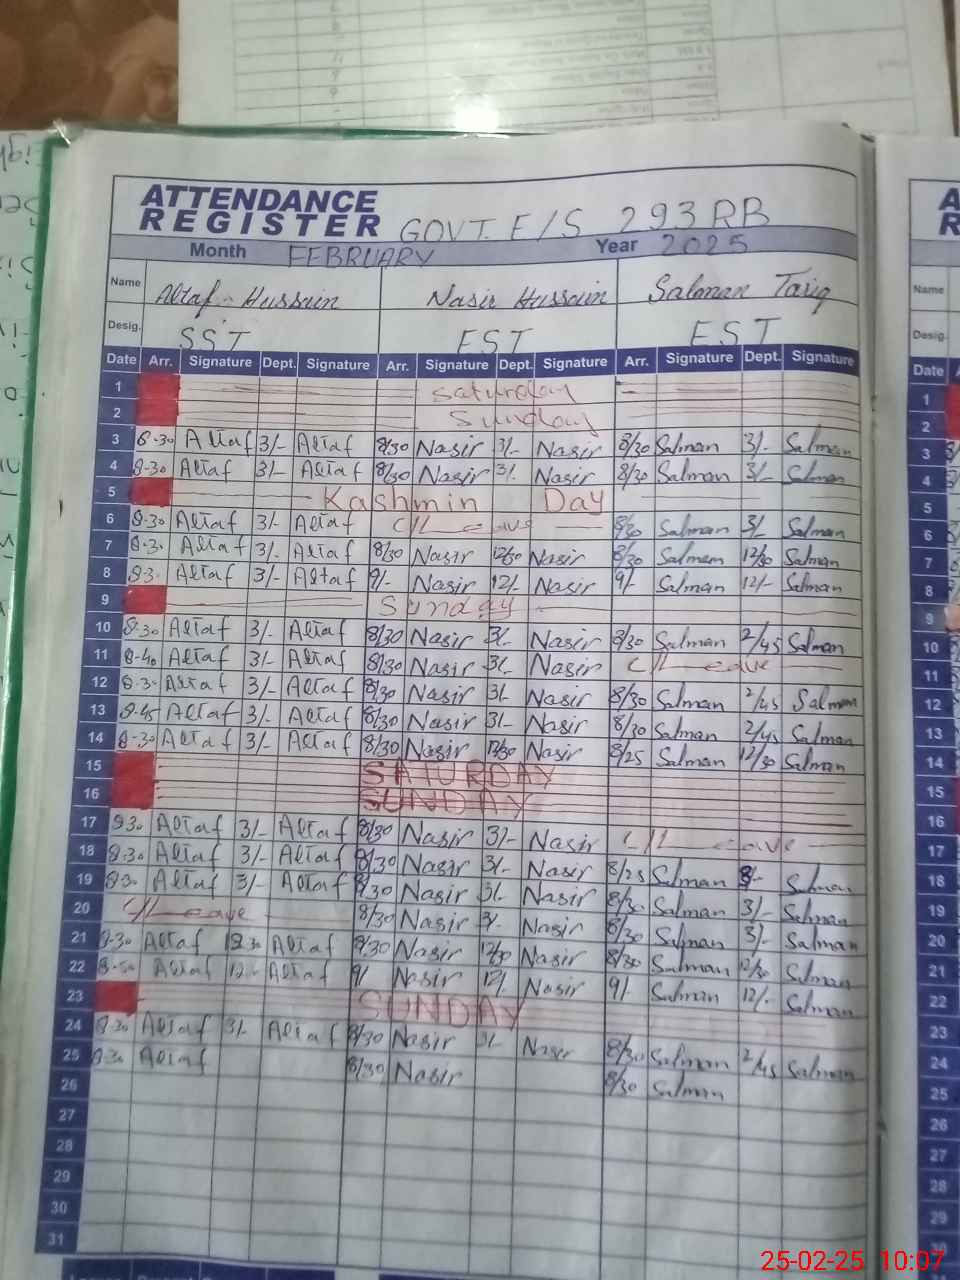 ATTENDANCE
REGISTER GOVT. E/S 293 RB
Month FEBRUARY Year 2025
Name Altaf Hussain Nasir Hussain Salman Tariq
Desig. SST EST EST
Date Arr. Signature Dept. Signature Arr. Signature Dept. Signature Arr. Signature Dept. Signature
1 Saturday
2 Sunday
3 8-30 Altaf 3/- Altaf 8/30 Nasir 3/- Nasir 8/30 Salman 3/- Salman
4 8-30 Altaf 3/- Altaf 8/30 Nasir 3/- Nasir 8/30 Salman 3/- Salman
5 Kashmin Day
6 8-30 Altaf 3/- Altaf C/Leave 8/30 Salman 3/- Salman
7 8-3. Altaf 3/- Altaf 8/30 Nasir 12/30 Nasir 8/30 Salman 12/30 Salman
8 8-3. Altaf 3/- Altaf 9/- Nasir 12/- Nasir 9/- Salman 12/- Salman
9 Sunday
10 8-30 Altaf 3/- Altaf 8/30 Nasir 3/- Nasir 8/30 Salman 2/45 Salman
11 8-40 Altaf 3/- Altaf 8/30 Nasir 3/- Nasir C/Leave
12 8-3. Altaf 3/- Altaf 8/30 Nasir 3/- Nasir 8/30 Salman 2/45 Salman
13 8-45 Altaf 3/- Altaf 8/30 Nasir 3/- Nasir 8/30 Salman 2/45 Salman
14 8-30 Altaf 3/- Altaf 8/30 Nasir 12/30 Nasir 8/25 Salman 12/30 Salman
15 SATURDAY
16 SUNDAY
17 830 Altaf 3/- Altaf 8/30 Nasir 3/- Nasir C/Leave
18 8-30 Altaf 3/- Altaf 8/30 Nasir 3/- Nasir 8/25 Salman 3/- Salman
19 830 Altaf 3/- Altaf 8/30 Nasir 3/- Nasir 8/30 Salman 3/- Salman
20 C/Leave 8/30 Nasir 3/- Nasir 8/30 Salman 3/- Salman
21 8-30 Altaf 12-30 Altaf 8/30 Nasir 12/30 Nasir 8/30 Salman 12/30 Salman
22 Altaf Altaf 9/ Nasir 12/- Nasir 9/- Salman 12/- Salman
23 SUNDAY
24 8-30 Altaf 3/- Altaf 8/30 Nasir 3/- Nasir 8/30 Salman 2/45 Salman
25 8-30 Altaf 8/30 Nasir 8/30 Salman
26
27
28
29
30
31
Name
Desig.
Date
1
2
3
4
5
6
7
8
9
10
11
12
13
14
15
16
17
18
19
20
21
22
23
24
25
26
27
28
29
30
25-02-25 10:07